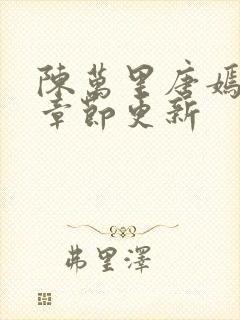 陳萬里唐嫣
章節更新
弗里澤